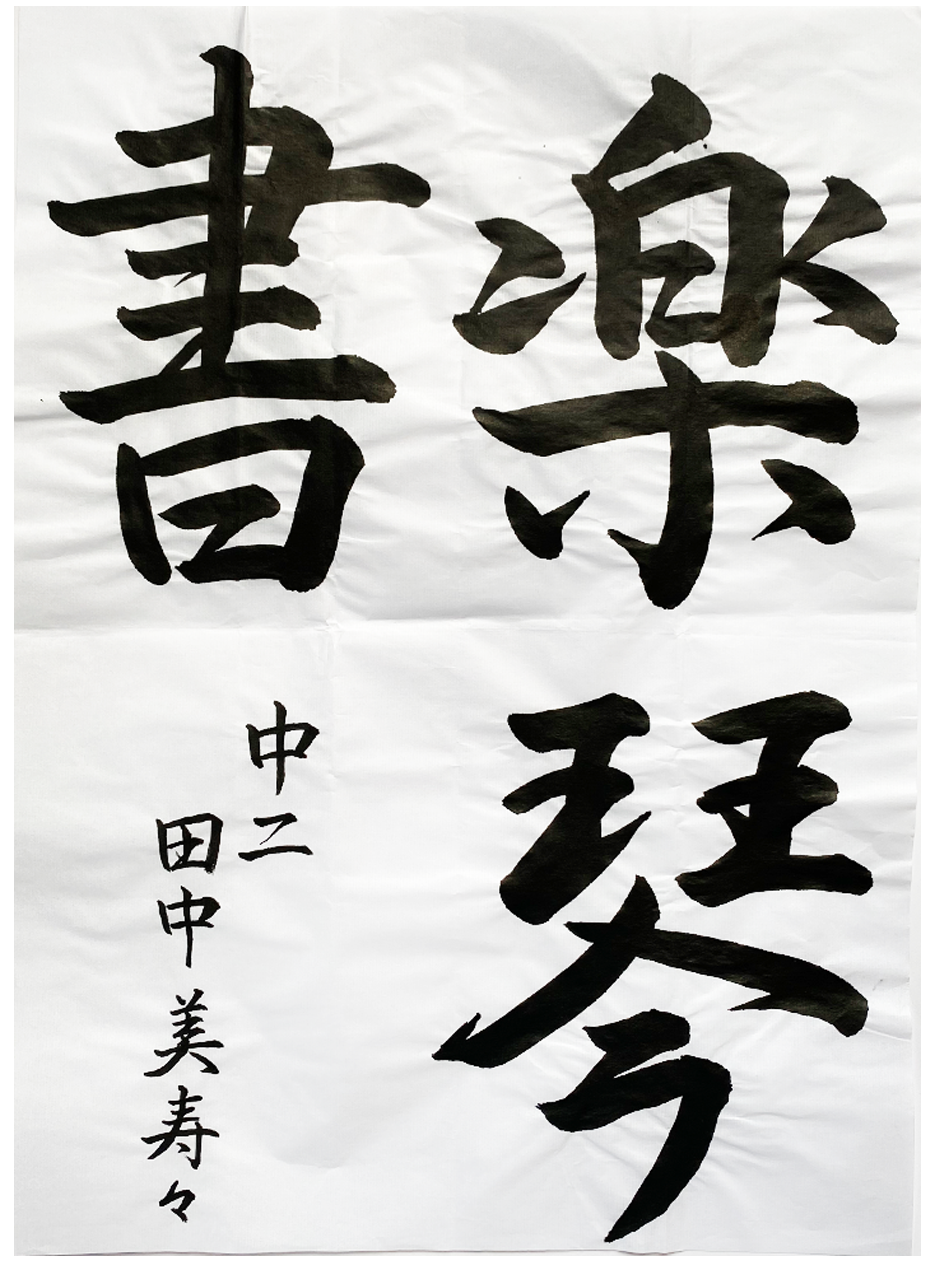 楽琴
書
中二
田中美寿々